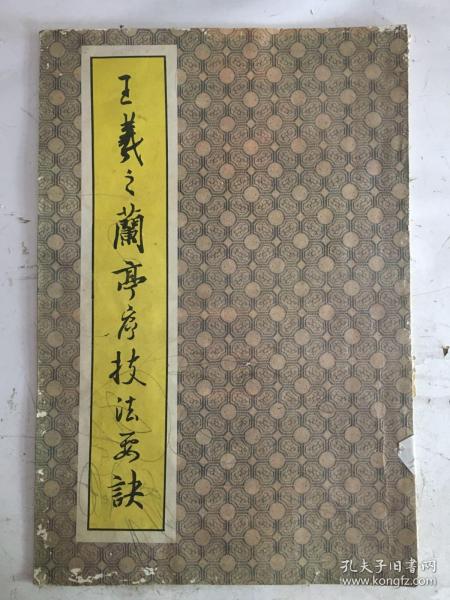 王羲之蘭亭序技法要訣
孔夫子旧书网
www.kongfz.com